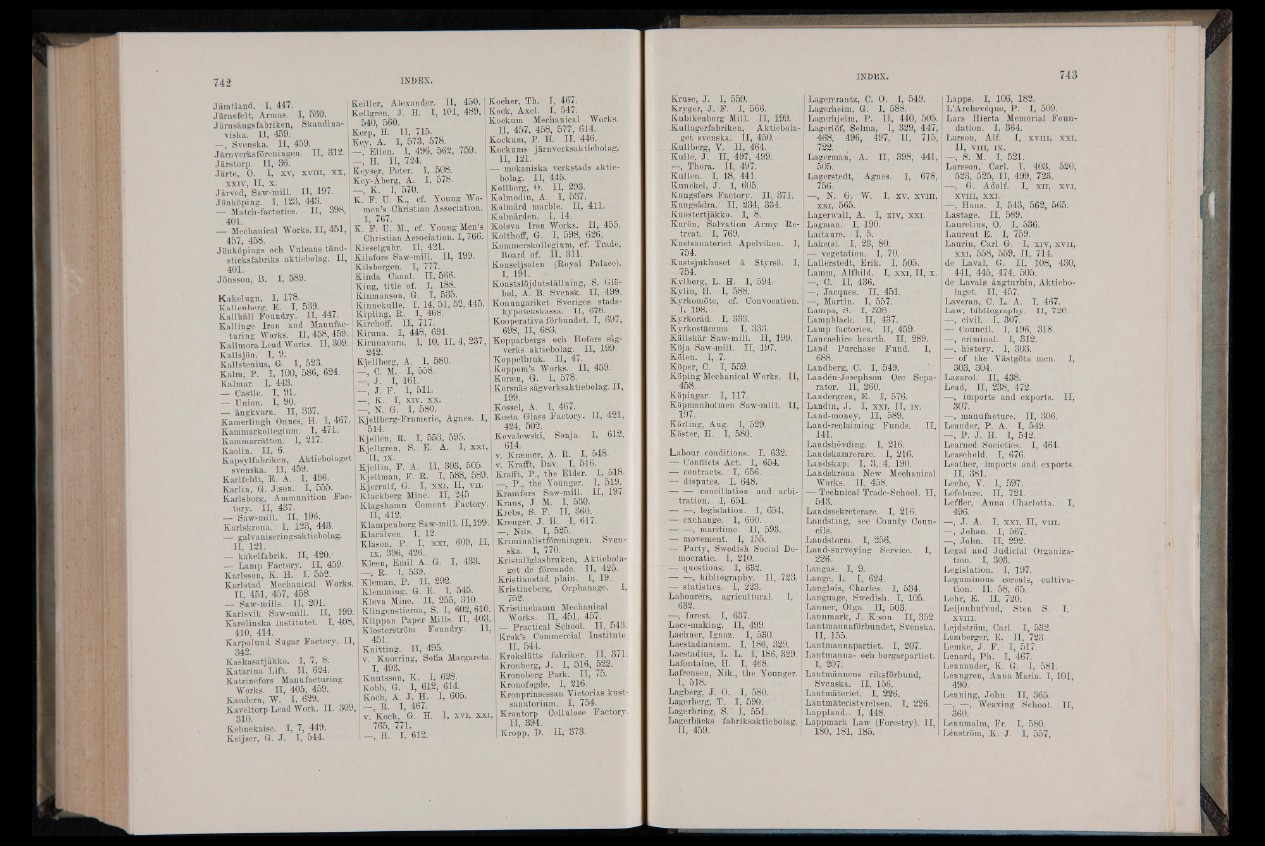 742
INDEX.
Jämtland. I, 447.
Järnefelt, Armas. I, 530.
Järnsängsfabriken, Skandina-
viska. II, 459.
—, Svenska. II, 459.
Järnverksföreningen. II, 312.
Järstorp. II, 36.
Järte, O. I, XV, XVIII, XX,
XXIV, II, X.
Järved, Saw-mill. II, 197.
Jönköping. I, 123, 443.
— Match-factories. II, 398,
401.
— Mechanical Works. II, 451,
457, 458.
Jönköpings och Vulcans tänd-
sticksfabriks aktiebolag. II,
401.
Jönsson, B. I, 589.
Kakelugn. I, 178.
Kallenberg, E. I, 539.
Kallhäll Foundry. II, 447.
Kallinge Iron and Manufac-
turing Works. II, 458, 459.
Kallmora Lead Works. II, 309.
Kallsjön. I, 9.
Kallstenius, G. I, 523.
Kalm, P. I, 100, 586, 624.
Kalmar. I, 443.
— Castle. I, 91.
— Union. I, 90.
— ångkvarn. II, 337.
Kamerlingh Onnes, H. I, 467.
Kammarkollegium. I, 471.
Kammarrätten. I, 217.
Kaolin. II, 6.
Kapsylfabriken, Aktiebolaget
svenska. II, 459.
Karlfeldt, E. A. I, 496.
Karlin, G. J:son. I, 555.
Karlsborg, Ammunition Fac-
tory. II, 437.
— Saw-mill. II, 196.
Karlskrona. I, 123, 443.
— galvaniseringsaktiebolag.
II, 121.
— kakelfabrik. II, 420.
— Lamp Factory. II, 459.
Karlsson, K. H. I, 552.
Karlstad Mechanical Works.
II, 451, 457, 458.
— Saw-mills. II, 201.
Karlsvik Saw-mill. II, 199.
Karolinska institutet. I, 408,
410, 414.
Karpalund Sugar Factory. II,
342.
Kaskasatjåkko. I, 7, 8.
Katarina Lift. II, 624.
Katrinefors Manufacturing
Works. II, 405, 459.
Kaudern, W. I, 629.
Kaveltorp Lead Work. II. 309,
310.
Kebnekaise. I, 7, 449.
Keijser, G. J. I, 544.
Keiller, Alexander. II, 450.
Kellgren, J. H. I, 101, 489,
540, 560.
Kerp, H. II, 715.
Key, A. I, 573, 578.
—, Ellen. I, 496, 562, 759.
—, H. II, 724.
Keyser, Peter. I, 508.
Key-Åberg, A. I, 578.
—, K. I, 570.
K. F. U. K., cf. Young Wo-
men's Christian Association.
I, 767.
K. F. U. M., cf. Young Men's
Christian Association. I, 766.
Kieselguhr. II, 421.
Kilafors Saw-mill. II, 199.
Kilsbergen. I, 777.
Kinda Canal. II, 566.
King, title of. I, 188.
Kinmanson, G. I, 535.
Kinnekulle. I, 14, 51, 52, 445.
Kipling, R. I, 468.
Kirchoff. II, 717.
Kiruna. I, 448, 691.
Kirunavara. I, 10, II, 4, 237,
242.
Kjellberg, A. I, 580.
—, C. M. I, 558.
—, J. I, 161.
—, J. F. I, 511.
—, K. I, XIV, XX.
—, N. G. I, 580.
Kjellberg-Frumerie, Agnes. I,
514.
Kjellén, R. I, 553, 595.
Kjellgren, S. E. A. I, XXI,
II, IX.
Kjellin, F. A. II, 303, 505.
Kjellman, F. R. I, 588, 589.
Kjerralf, G. I, XXI, II, VII.
Klackberg Mine. II, 245
Klagshamn Cement Factory.
II, 412.
Klampenborg Saw-mill. II, 199.
Klarälven. I, 12.
Klason, P. I, XXI, 609, II,
IX, 396, 426.
Kleen, Emil A. G. I, 433.
—, R. I, 539.
Kleman, P. II, 292.
Klemming, G. E. I, 545.
Kleva Mine. II, 255, 310.
Klingenstierna, S. I, 602, 610.
Klippan Paper Mills. II, 403.
Klosterström Foundry. II,
451.
Knitting. II, 495.
v. Knorring, Sofia Margareta.
I, 493.
Knutsson, K. I, 628.
Kobb, G. I, 612, 614.
Koch, A. J. H. I, 605.
—, R. I, 467.
v. Koch, G. H. I, XVI, XXI,
765, 771.
—, H. I, 612.
Kocher, Th. I, 467.
Kock, Axel. I, 547.
Kockum Mechanical Works.
II, 457, 458, 577, 614.
Kockum, P. H. II, 446.
Kockums järnverksaktiebolag.
II, 121.
— mekaniska verkstads aktie-
bolag. II, 445.
Kollberg, O. II, 293.
Kolmodin, A. I, 537.
Kolmård marble. II, 411.
Kolmården. I, 14.
Kolsva Iron Works. II, 455.
Kolthoff, G. I, 598, 626.
Kommerskollegium, cf. Trade,
Board of. II, 311.
Konseljsalen (Royal Palace).
I, 191.
Konstslöjdutställning, S. Giö-
bel, A. B. Svensk. II, 499.
Konungariket Sveriges stads-
hypotekskassa. II, 676.
Kooperativa förbundet. I, 697,
698, II, 683.
Kopparbergs och Hofors såg-
verks aktiebolag. II, 199.
Koppelbruk. II, 47.
Koppom's Works. II, 459.
Koræn, G. I, 578.
Korsnäs sågverksaktiebolag. II,
199.
Kossel, A. I, 467.
Kosta Glass Factory. II, 421,
424, 502.
Kovalewski, Sonja. I, 612,
614.
v. Kræmer, A. R. I, 548.
v. Krafft, Dav. I, 516.
Krafft, P., the Elder. I, 518.
—, P., the Younger. I, 519.
Kramfors Saw-mill. II, 197.
Kraus, J. M. I, 530.
Krebs, S. F. II, 360.
Kreuger, J. H. I, 617.
—, Nils. I, 525.
Kriminalistföreningen, Sven-
ska. I, 770.
Kristallglasbruken, Aktiebola-
get de förenade. II, 425.
Kristianstad plain. I, 19.
Kristineberg, Orphanage. I,
752.
Kristinehamn Mechanical
Works. II, 451, 457.
— Practical School. II, 543.
Krok's Commercial Institute
II, 544.
Krokslätts fabriker. II, 371.
Kronberg, J. I, 516, 522.
Kronoberg Park. II, 75.
Kronofogde. I, 216.
Kronprinsessan Victorias kust-
sanatorium. I, 754.
Krontorp Cellulose Factory.
II, 394.
Kropp, D. II, 373.
INDEX.
743
Kruse, J. I, 559.
Kryger, J. F. I, 566.
Kubikenborg Mill. II, 199.
Kullagerfabriken, Aktiebola-
get svenska. II, 450.
Kullberg, V. II, 464.
Kulle, J. II, 497, 499.
—, Thora. II, 497.
Kullen. I, 18, 441.
Kunckel, J. I, 605.
Kungsfors Factory. II, 371.
Kungsådra. II, 234, 334.
Kuostertjåkko. I, 8.
Kurön, Salvation Army Re-
treat. I, 769.
Kustsanatoriet Apelviken. I,
754.
Kustsjukhuset å Styrsö. I,
754.
Kylberg, L. H. I, 594.
Kylin, H. I, 588.
Kyrkomöte, cf. Convocation.
I, 198.
Kyrkoråd. I, 333.
Kyrkostämma. I, 333.
Källskär Saw-mill. II, 199.
Köja Saw-mill. II, 197.
Kölen. I, 7.
Köper, C. I, 559.
Köping Mechanical Works. II,
458.
Köpingar. I, 117.
Köpmanholmen Saw-mill. II,
197.
Körling, Aug. I, 529.
Köster, H. I, 580.
Labour conditions. I, 632.
— Conflicts Act. I, 654.
— contracts. I, 656.
— disputes. I, 648.
— — conciliation and arbi-
tration. I, 651.
— —, legislation. I, 654.
— exchange. I, 660.
— —, maritime. II, 593.
— movement. I, 155.
— Party, Swedish Social De-
mocratic. I, 210.
— questions. I, 632.
— —, bibliography. II, 723.
— statistics. I, 223.
Labourers, agricultural. I,
632.
—, forest. I, 637.
Lace-making. II, 499.
Lachner, Ignaz. I, 530.
Laestadianism. I, 186, 329.
Laestadius, L. L. I, 186, 329.
Lafontaine, H. I, 468.
Lafrensen, Nik., the Younger.
I, 518.
Lagberg, J. O. I, 580.
Lagerberg, T. I, 590.
Lagerbring, S. I, 551.
Lagerbäcks fabriksaktiebolag.
II, 459.
Lagercrantz, C. O. I, 549.
Lagerheim, G. I, 588.
Lagerhjelm, P. II, 440, 505.
Lagerlöf, Selma, I, 329, 447,
468, 496, 497, II, 715,
722.
Lagerman, A. II, 398, 441,
505.
Lagerstedt, Agnes. I, 678,
756.
—, N. G. W. I, XV, XVIII,
XXI, 565.
Lagerwall, A. I, XIV, XXI.
Lagman. I, 190.
Laitaure. I, 5.
Lake(s). I, 23, 80.
— vegetation. I, 70.
Lallerstedt, Erik. I, 505.
Lamm, Alfhild. I, XXI, II, X.
—, C. II, 436.
—, Jacques. II, 451.
—, Martin. I, 557.
Lampa, S. I, 599.
Lampblack. II, 437.
Lamp factories. II, 459.
Lancashire hearth. II, 289.
Land Purchase Fund. I,
688.
Landberg, C. I, 549.
Landén-Josephson Ore Sepa-
rator. II, 260.
Landergren, E. I, 576.
Landin, J. I, XXI. II, IX.
Land-money. II, 589.
Land-reclaiming Funds. II,
141.
Landshövding. I, 216.
Landskamrerare. I, 216.
Landskap. I, 3, 4, 190.
Landskrona New Mechanical
Works. II, 458.
— Technical Trade-School. II,
543.
Landssekreterare. I, 216.
Landsting, see County Coun-
cils.
Landstorm. I, 256.
Land-surveying Service. I,
226.
Langas. I, 9.
Lange, L. I, 624.
Langlois, Charles. I, 534.
Language, Swedish. I, 105.
Lanner, Olga. II, 503.
Lannmark, J. K:son. II, 352.
Lantmannaförbundet, Svenska.
II, 155.
Lantmannapartiet. I, 207.
Lantmanna- och borgarpartiet.
I, 207.
Lantmännens riksförbund,
Svenska. II, 156.
Lantmäteriet. I, 226.
Lantmäteristyrelsen. I, 226.
Lappland. I, 448.
Lappmark Law (Forestry). II,
180, 181, 185.
Lapps. I, 106, 182.
L'Archevêque, P. I, 509.
Lars Hierta Memorial Foun-
dation. I, 364.
Larson, Alf. I, XVIII, XXI,
II, VIII, IX.
—, S. M. I, 521.
Larsson, Carl. I, 403, 520,
523, 525, II, 499, 723.
—, G. Adolf. I, XII, XVI,
XVIII, XXI.
—, Hans. I, 543, 562, 565.
Lastage. II, 589.
Laurelius, O. I, 536.
Laurent E. I, 759.
Laurin, Carl G. I, XIV, XVII,
XXI, 558, 559, II, 714.
de Laval, G. II, 108, 430,
441, 445, 474, 505.
de Lavals ångturbin, Aktiebo-
laget. II, 457.
Laveran, C. L. A. I, 467.
Law, bibliography. II, 720.
—, civil. I, 307.
— Council. I, 196, 318.
—, criminal. I, 312.
—, history. I, 303.
— of the Västgöta men. I,
303, 304.
Lazarol. II, 438.
Lead, II, 238, 472.
—, imports and exports. II,
307.
—, manufacture. II, 306.
Leander, P. A. I, 549.
—, P. J. H. I, 542.
Learned Societies. I, 464.
Leasehold. I, 676.
Leather, imports and exports.
II, 381.
Leche, V. I, 597.
Lefebure. II, 721.
Leffler, Anna Charlotta. I,
496.
—, J. A. I, XXI, II, VIII.
—, Johan. I, 567.
—, John. II, 292.
Legal and Judicial Organiza-
tion. I, 303.
Legislation. I, 197.
Leguminous cereals, cultiva-
tion. II. 58, 65.
Lehr, E. II, 720.
Leijonhufvud, Sten S. I,
XVIII.
Lejdström, Carl. I, 532.
Lemberger, E. II, 723.
Lemke, J. F. I, 517.
Lenard, Ph. I, 467.
Lennander, K. G. I, 581.
Lenngren, Anna Maria. I, 101,
490.
Lenning, John. II, 365.
—, —, Weaving School. II,
360.
Lennmalm, Fr. I, 580.
Lénström, K. J. I, 557,